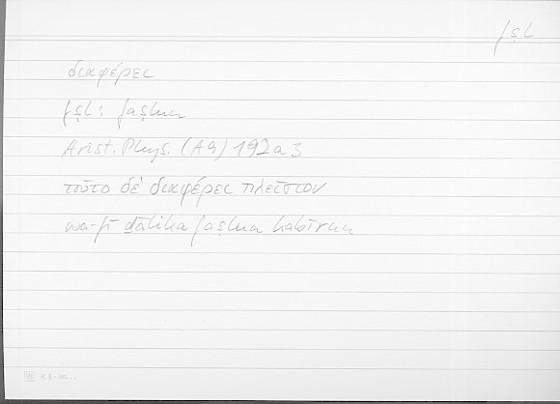 fṣl
διαφέρει
fṣl: faṣlun
Arist. Phys. (A9) 192a3
τοῦτο δὲ διαφέρει πλεῖστον
wa-fī ḏālika faṣlun kabīrun